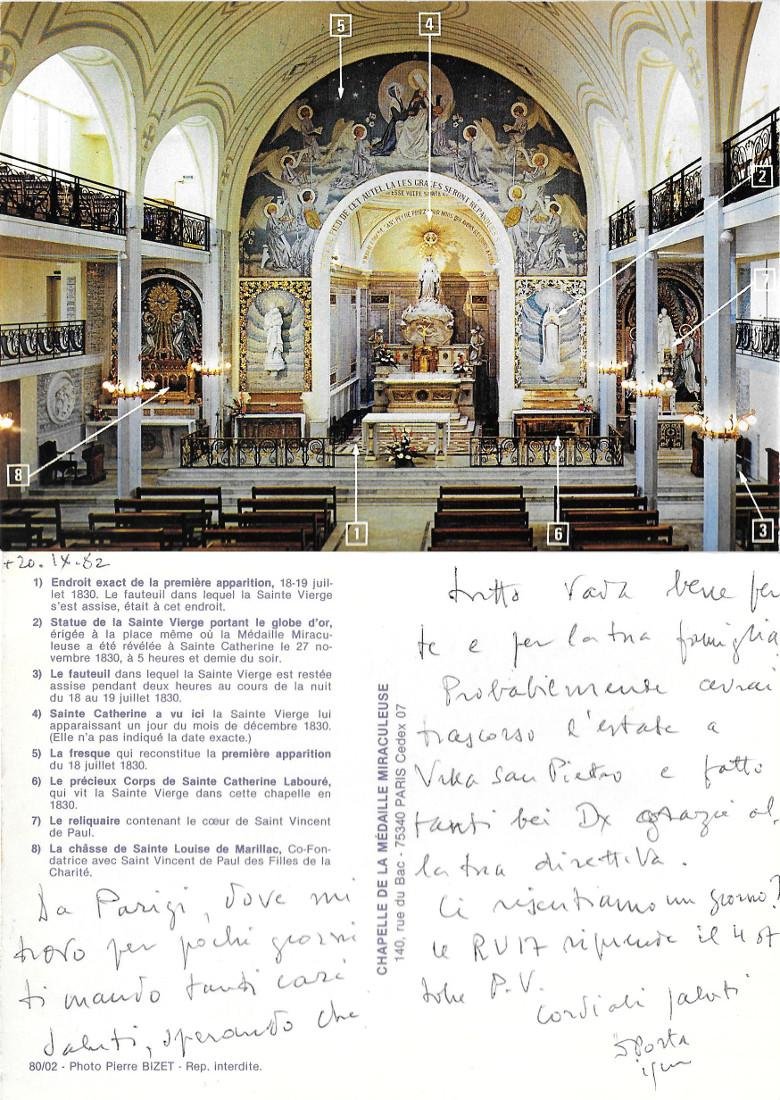 5
4
2
7
8
1
6
3
PIED DE CET AUTEL. LA LES GRACES SERONT REPANDUES
+20.IX.82
1) Endroit exact de la première apparition, 18-19 juil-
let 1830. Le fauteuil dans lequel la Sainte Vierge
s'est assise, était à cet endroit.
2) Statue de la Sainte Vierge portant le globe d'or,
érigée à la place même où la Médaille Miracu-
leuse a été révélée à Sainte Catherine le 27 no-
vembre 1830, à 5 heures et demie du soir.
3) Le fauteuil dans lequel la Sainte Vierge est restée
assise pendant deux heures au cours de la nuit
du 18 au 19 juillet 1830.
4) Sainte Catherine a vu ici la Sainte Vierge lui
apparaissant un jour du mois de décembre 1830.
(Elle n'a pas indiqué la date exacte.)
5) La fresque qui reconstitue la première apparition
du 18 juillet 1830.
6) Le précieux Corps de Sainte Catherine Labouré,
qui vit la Sainte Vierge dans cette chapelle en
1830.
7) Le reliquaire contenant le cœur de Saint Vincent
de Paul.
8) La châsse de Sainte Louise de Marillac, Co-Fon-
datrice avec Saint Vincent de Paul des Filles de la
Charité.
Da Parigi, dove mi
trovo per pochi giorni
ti mando tanti cari
saluti, sperando che
80/02 - Photo Pierre BIZET - Rep. interdite.
CHAPELLE DE LA MÉDAILLE MIRACULEUSE
140, rue du Bac - 75340 PARIS Cedex 07
tutto vada bene per
te e per la tua famiglia
Probabilmente avrai
trascorso l'estate a
Villa San Pietro e fatto
tanti bei Dx grazie al-
la tua direttiva.
Ci risentiamo un giorno?
le RV17 riprende il 4 ot
tobre P.V.
Cordiali saluti